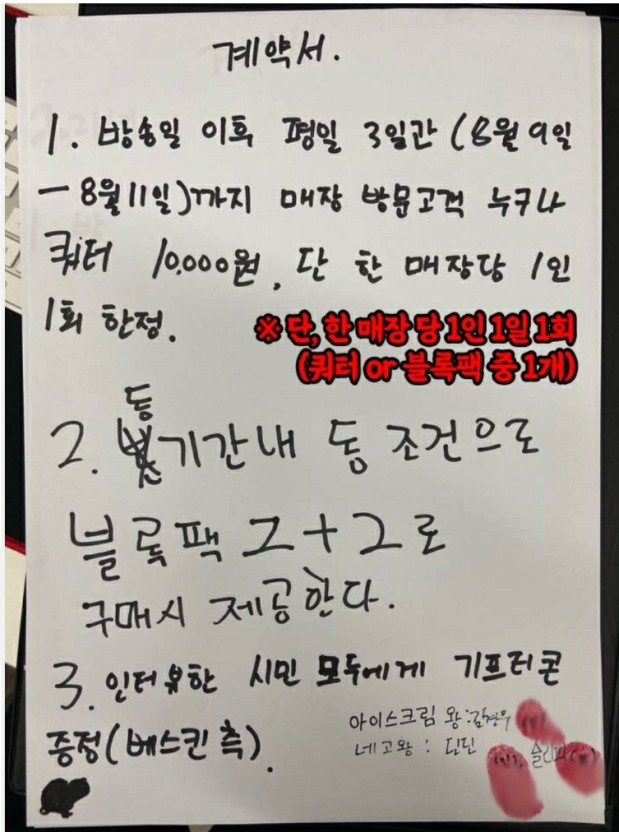 계약서.
1. 방송일 이후 평일 3일간 (8월 9일
- 8월 11일)까지 매장 방문고객 누구나
쿼터 10,000원, 단 한 매장당 1인
1회 한정.
※ 단, 한 매장 당 1인 1일 1회
(쿼터 or 블록팩 중 1개)
동
2. 기간내 동 조건으로
블록팩 2+2로
구매시 제공한다.
3. 인터뷰한 시민 모두에게 기프티콘
증정(베스킨 측).
아이스크림 왕:김현우 (인)
네고왕 : 딘딘 (인), 슬리피 (인)